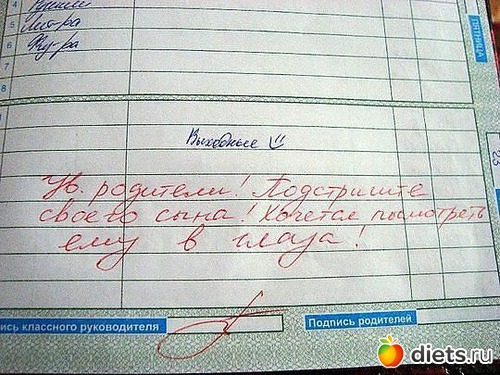 4
5 Лит-ра
6 Фу-ра
7
8
ПЯТНИЦА
Выходные
Ув. родители! Подстригите
своего сына! Хочется посмотреть
ему в глаза!
ись классного руководителя
Подпись родителей
diets.ru